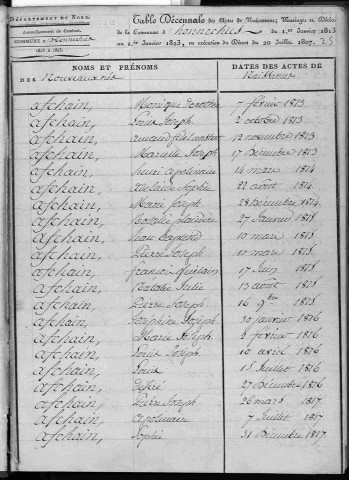 DÉPARTEMENT DU NORD.
Arrondissement de Cambrai.
COMMUNE d'honnechies
1813 à 1823.
Table Décennale des Actes de Naissances, Mariages et Décès
de la Commune d'honnechies du 1.er Janvier 1813
au 1.er Janvier 1823, en exécution du Décret du 20 Juillet 1807.
NOMS ET PRÉNOMS
DES Nouveaux nés
DATES DES ACTES DE
Naissances
afchain, Monique dorothée 7 février 1813
afchain, Louis Joseph 2 octobre 1813
afchain, amand fidel constant 12 novembre 1813
afchain, Marcelle Joseph 17 Décembre 1813
afchain, henri apolinaire 14 mars 1814
afchain, adelaide Sophie 22 août 1814
afchain, Marie Joseph 28 Décembre 1814
afchain, 27 Janvier 1815
afchain, Jean baptiste 10 mars 1815
afchain, Pierre Joseph 10 mars 1815
afchain, françois Guilain 17 Juin 1815
afchain, Natalie Julie 13 août 1815
afchain, Pierre Joseph 16 9bre 1815
afchain, Seraphine Joseph 30 janvier 1816
afchain, Marie Joseph 2 février 1816
afchain, Louis Joseph 10 avril 1816
afchain, Louis 15 Juillet 1816
afchain, Désiré 27 Décembre 1816
afchain, Pierre Joseph 26 mars 1817
afchain, apolinaire 7 Juillet 1817
afchain, Sophie 31 Décembre 1817.